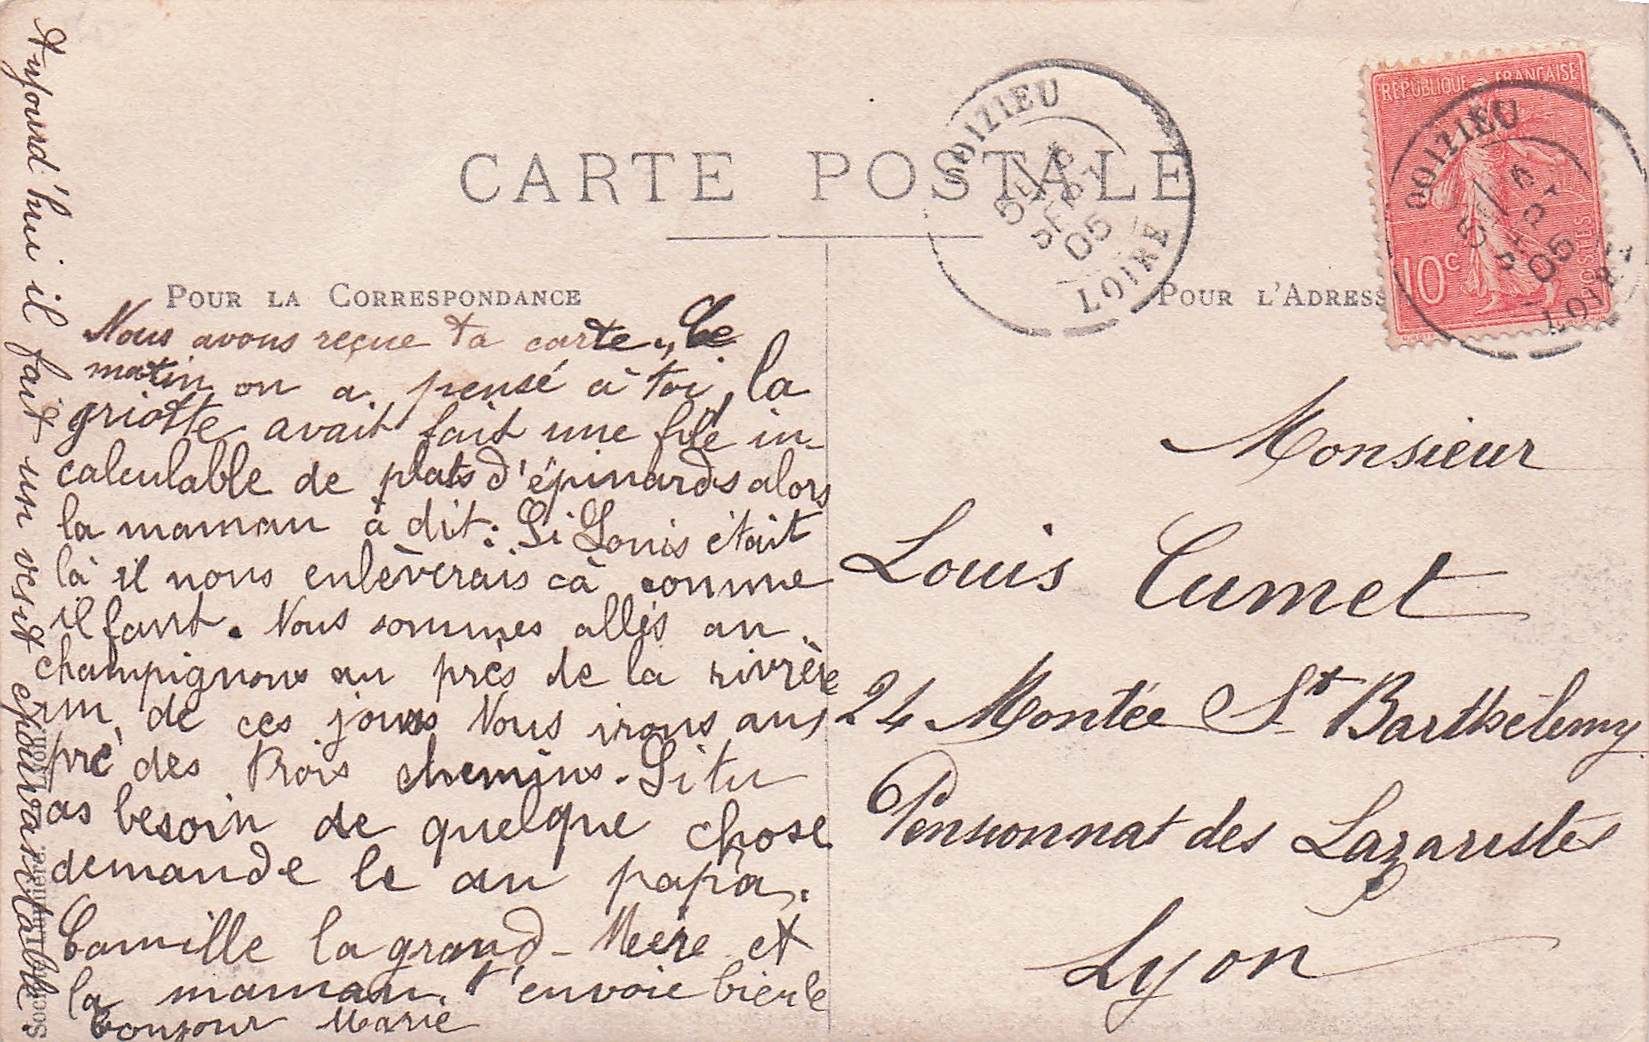 CARTE POSTALE
POUR LA CORRESPONDANCE
Nous avons reçue ta carte, Ce
matin on a pensé à toi, la
griotte avait fait une file in-
calculable de plats d'épinards alors
la maman à dit: Si Louis était
là il nous enlèverais cà comme
il faut. Nous sommes allés au
champignons au près de la rivière
un de ces jours Nous irons aux
pré des trois chemins. Si tu
as besoin de quelque chose
demande le au papa.
Camille la grand-Mère et
la maman t'envoie bien le
bonjour Marie
Aujourd'hui il fait un vent épouvantable.
SOIZIEU
5E
SEPT
05
LOIRE
POUR L'ADRESS
REPUBLIQUE FRANÇAISE
10c
POSTES
OIZIEU
05
LOIRE
Monsieur
Louis Cumet
24 Montée St Barthélemy
Pensionnat des Lazaristes
Lyon